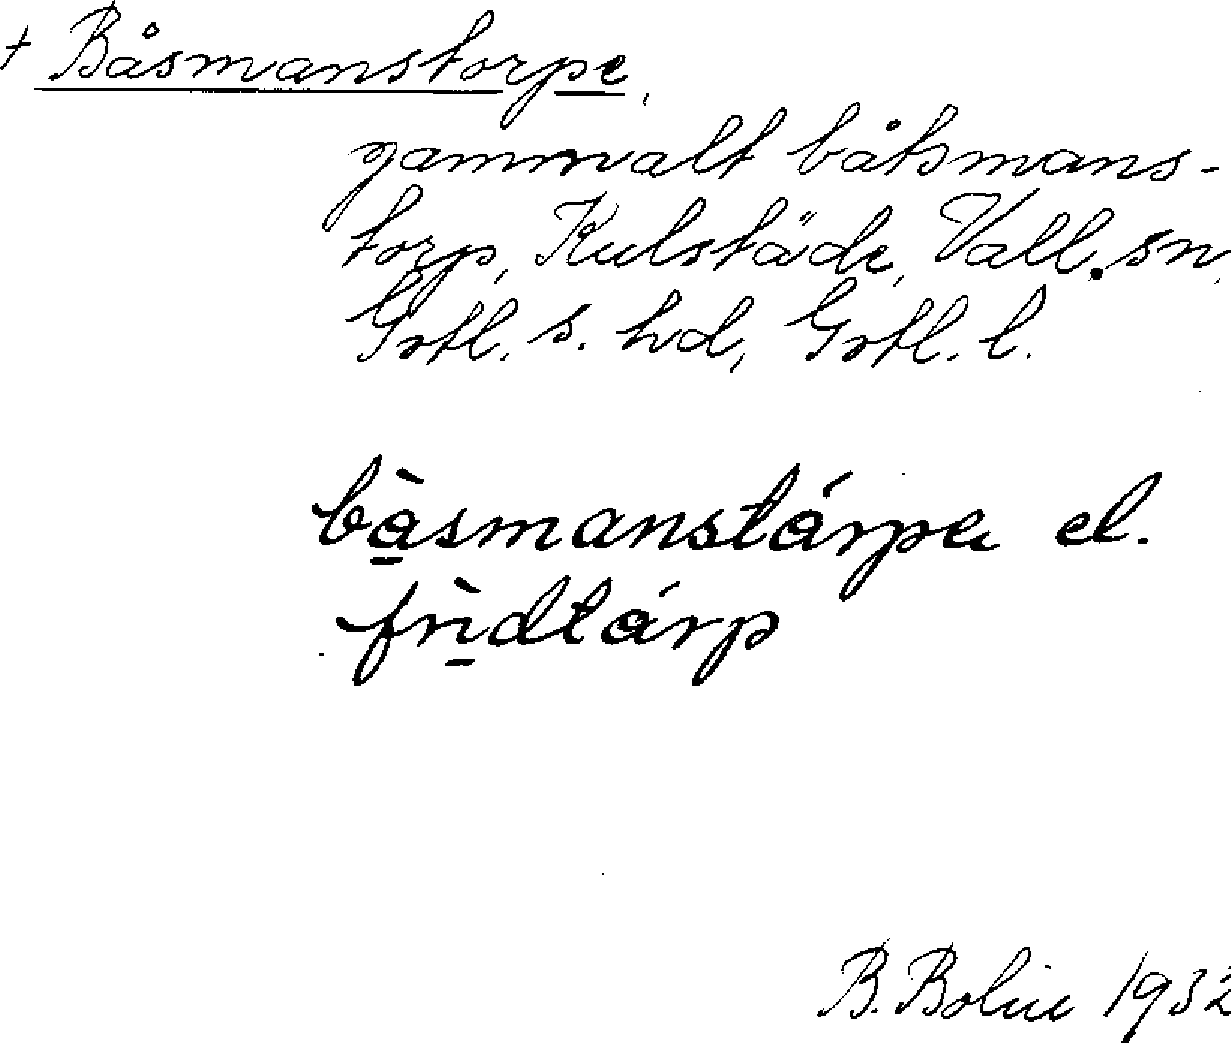 + Båsmanstorpe,
gammalt båtsmans-
torp, Kulstäde, Vall. sn,
Grtl. s. hd, Grtl. l.
bàsmanstárpe el.
frìdtárp
B. Bolin 1932